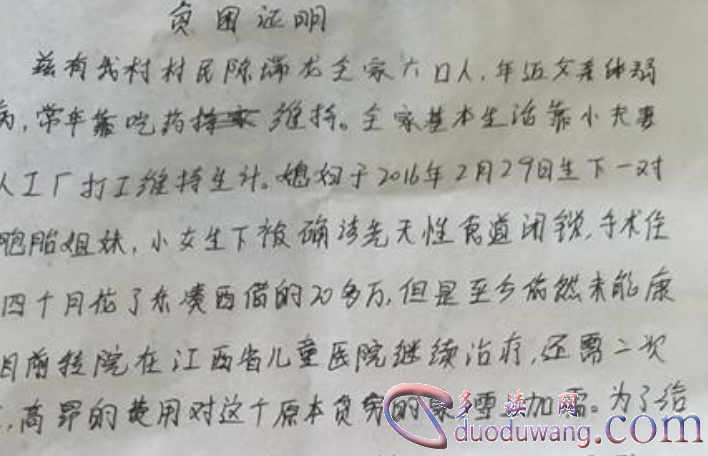 贫困证明
兹有我村村民陈瑞龙全家六口人,年迈父亲体弱
病,常年靠吃药 维持。全家基本生活靠小夫妻
人工厂打工维持生计。媳妇于2016年2月29日生下一对
胞胎姐妹,小女生下被确诊先天性食道闭锁,手术住
四个月花了东凑西借的20多万,但是至今依然未能康
目前转院在江西省儿童医院继续治疗,还需二次
,高昂的费用对这个原本贫穷的 雪 加霜。为了给
多读网
duoduwang.com